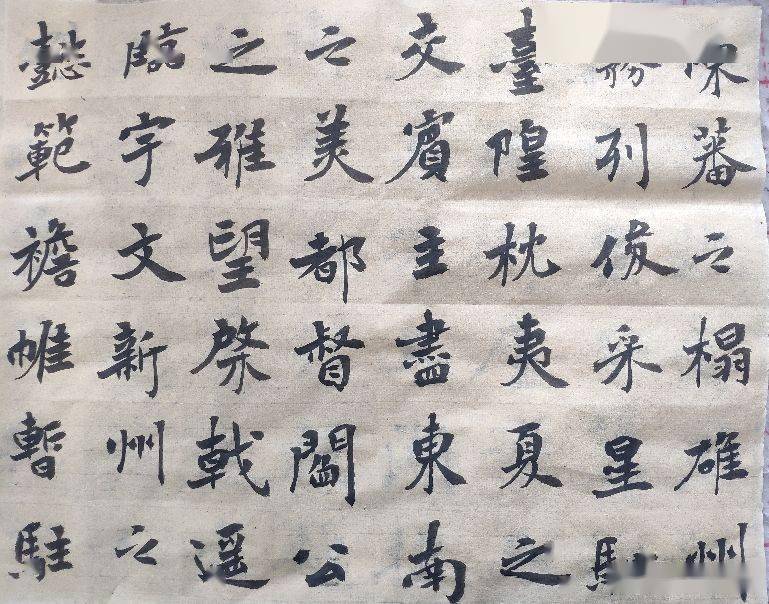 陳蕃之榻雄州
霧列俊采星馳
臺隍枕夷夏之
交賓主盡東南
之美都督閻公
之雅望棨戟遥
臨宇文新州之
懿範襜帷暫駐